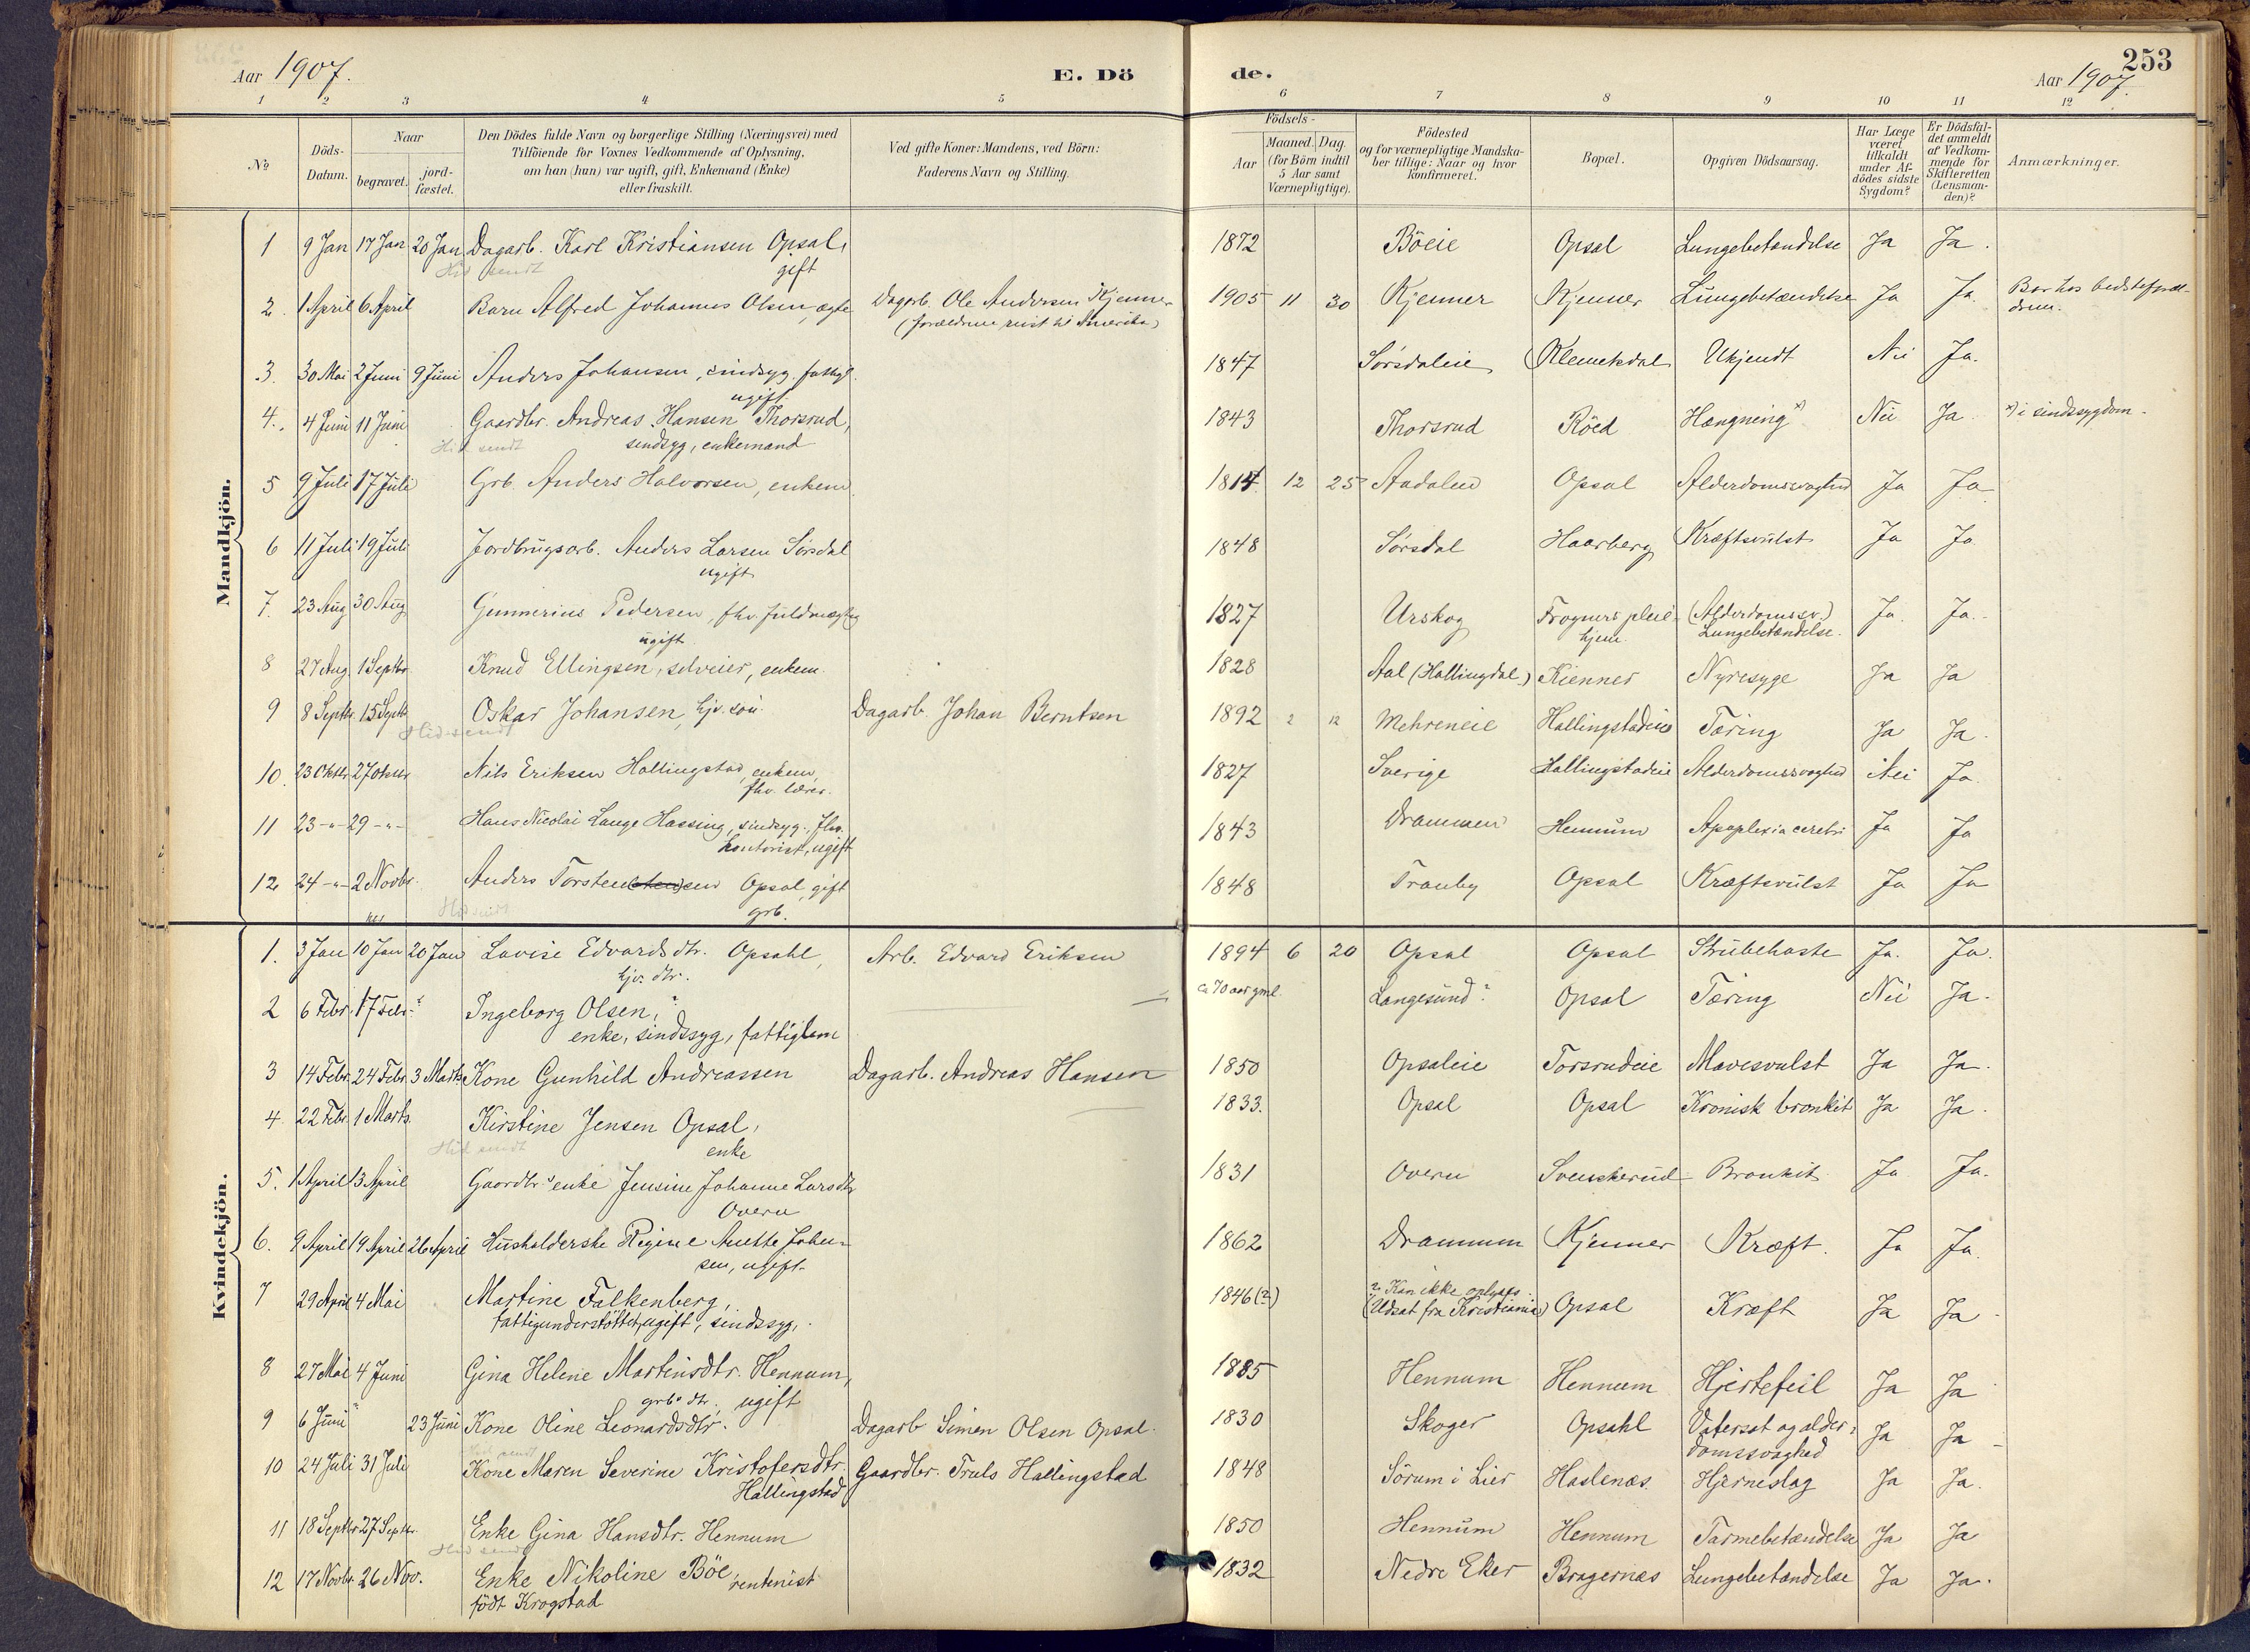 Aar 1907. E. Dö
de. 253
Aar 1907.
1 2 3 4 5
6 7 8 9 10 11 12
No Döds-Datum. Naar begravet. jordfæstet.
Den Dödes fulde Navn og borgerlige Stilling (Næringsvei) med
Tilföiende for Voxnes Vedkommende af Oplysning,
om han (hun) var ugift, gift, Enkemand (Enke)
eller fraskilt.
Ved gifte Koner: Mandens, ved Börn:
Faderens Navn og Stilling.
Födsels-
Aar Maaned. Dag.
(for Börn indtil
5 Aar samt
Værnepligtige).
Födested
og for værnepligtige Mandska-
ber tillige: Naar og hvor
konfirmeret.
Bopæl.
Opgiven Dödsaarsag.
Har Læge
været
tilkaldt
under Af-
dödes sidste
Sygdom?
Er Dödsfal-
det anmeldt
af Vedkom-
mende for
Skifteretten
(Lensman-
den)?
Anmærkninger.
Mandkjön.
1 9 Jan 17 Jan 20 Jan Dagarb. Karl Kristiansen Opsal, 1872 Böeie Opsal Lungebetændelse Ja Ja.
Hid sendt gift
2. 1 April 6 April Barn Alfred Johannes Olsen, ægte Dagarb. Ole Andersen Kjenner 1905 11 30 Kjenner Kjenner Lungebetændelse Ja Ja. Bor hos bedsteforæl-
(forældrene reist til Amerika) drene.
3. 30 Mai 2 Juni 9 Juni Anders Johansen, sindsyg. fattigl. 1847 Sörsdaleie Klemetsdal Ukjendt Nei Ja.
ugift.
4. 4 Juni 11 Juni Gaardbr. Andreas Hansen Thorsrud, 1843 Thorsrud Röed Hængning x) Nei Ja x) i sindssygdom.
Hid sendt sindsyg, enkemand
5 9 Juli 17 Juli Grb. Anders Halvorsen, enkem. 1814 12 25 Aadalen Opsal Alderdomssvaghed Ja Ja
6 11 Juli 19 Juli Jordbrugsarb. Anders Larsen Sörsdal 1848 Sörsdal Haarberg Kræftsvulst Ja Ja
ugift
7. 23 Aug 30 Aug Gunnerius Pedersen, fhv. fuldmægtig 1827 Urskog Frogners pleie- (Alderdomssv.) Ja Ja.
ugift hjem. Lungebetændelse.
8 27 Aug 1 Septbr. Knud Ellingsen, selveier, enkem. 1828 Aal (Hallingdal) Kienner Nyresyge Ja Ja
9 8 Septbr. 15 Septb Oskar Johansen, hjv. sön. Dagarb. Johan Berntsen 1892 2 12 Mehreneie Hallingstadeie Tæring Ja Ja.
Hid sendt
10. 23 Oktbr 27 oktbr Nils Eriksen Hallingstad, enkem, 1827 Sverige Hallingstadeie Alderdomssvaghed Nei Ja.
fhv. lærer.
11 23 -"- 29 -"- Hans Nicolai Lange Hassing, sindsyg., fhv. 1843 Drammen Hennum Apoplexia cerebri Ja Ja
kontorist, ugift
12 24 -"- 2 Novbr. Anders Torstensen Opsal, gift 1848 Tranby Opsal Kræftsvulst Ja Ja
Hid sendt grb.
Kvindekjön.
1. 3 Jan 10 Jan 20 Jan Lovise Edvardsdtr. Opsahl, Arb. Edvard Eriksen 1894 6 20 Opsal Opsal Strubehoste Ja. Ja.
hjv. dtr.
2 6 Febr. 17 Febr. ? Ingeborg Olsen, ? ca 70 aar gml. Langesund? Opsal Tæring Nei Ja.
enke, sindssyg, fattiglem
3 14 Febr. 24 Febr. 3 Marts Kone Gunhild Andreassen Dagarb. Andreas Hansen 1850 Opsaleie Torsrudeie Mavesvulst Ja Ja.
4. 22 Febr. 1 Marts. Kirstine Jensen Opsal, 1833. Opsal Opsal Kronisk bronkit Ja Ja.
Hid sendt enke
5. 1 April 13 April Gaardbr's enke Jensine Johanne Larsdtr 1831 Overn Svenskerud Bronkit Ja Ja.
Overn
6. 9 April 19 April 26 April Husholderske Regine Anette Johan- 1862 Drammen Kjenner Kræft. Ja Ja.
sen, ugift.
7 29 April 4 Mai Martine Falkenberg, 1846 (?) ? Kan ikke oplyses. Opsal Kræft Ja Ja
fattigunderstöttet, ugift, sindssyg. (Udsat fra Kristiania)
8 27 Mai 4 Juni Gina Helene Martinsdtr. Hennum, 1885 Hennum Hennum Hjertefeil Ja Ja
grb's dtr. ugift
9 6 Juni 23 Juni Kone Oline Leonardsdtr. Dagarb Simen Olsen Opsal. 1830 Skoger Opsahl Vatersot og alder- Ja Ja
domssvaghed
10 24 Juli 31 Juli Kone Maren Severine Kristofersdtr. Gaardbr. Truls Hallingstad 1848 Sörum i Lier Haslenæs Hjerneslag Ja Ja.
Hallingstad
11 18 Septbr. 27 Septbr. Enke Gina Hansdtr. Hennum 1850 Hennum Hennum Tarmebetændelse Ja Ja
Hid sendt
12 17 Novbr. 26 Nov. Enke Nikoline Böe, rentenist 1832 Nedre Eker Bragernæs Lungebetændelse Ja Ja.
födt Krogstad